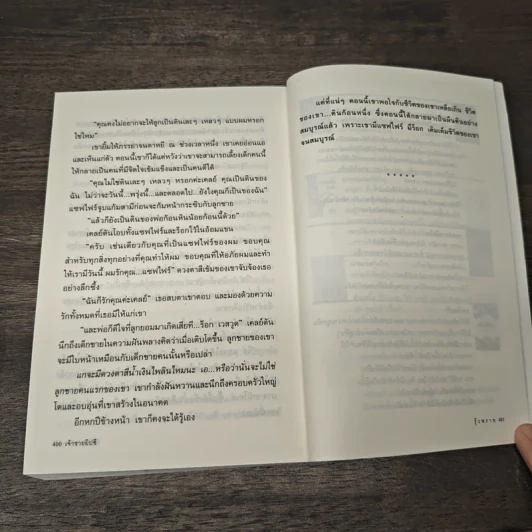 "คุณคงไม่อยากจะให้ลูกเป็นดินเละๆ เหลวๆ แบบผมหรอก
ใช่ไหม"
เขายิ้มให้ภรรยาจนตาหยี ณ ช่วงเวลาหนึ่ง เขาเคยอ่อนแอ
และเห็นแก่ตัว ตอนนี้เขาก็ได้แต่หวังว่าเขาจะสามารถเลี้ยงเด็กคนนี้
ให้กลายเป็นคนที่มีจิตใจเข้มแข็งและเป็นคนดีได้
"คุณไม่ใช่ดินเละๆ เหลวๆ หรอกค่ะเคลย์ คุณเป็นดินของ
ฉัน ไม่ว่าจะวันนี้...พรุ่งนี้...และตลอดไป...ยังไงคุณก็เป็นของฉัน"
แซฟไฟร์จูบแก้มสามีก่อนจะก้มหน้ากระซิบกับลูกชาย
"แล้วก็ยังเป็นดินของพ่อก้อนหินน้อยก้อนนี้ด้วย"
เคลย์ตันโอบทั้งแซฟไฟร์และร็อกไว้ในอ้อมแขน
"ครับ เช่นเดียวกับคุณที่เป็นแซฟไฟร์ของผม ขอบคุณ
สำหรับทุกสิ่งทุกอย่างที่คุณทำให้ผม ขอบคุณที่ให้อภัยผมและทำ
ให้เรามีวันนี้ ผมรักคุณ...แซฟไฟร์" ดวงตาสีเข้มของเขาจับจ้องเธอ
อย่างลึกซึ้ง
"ฉันก็รักคุณค่ะเคลย์" เธอสบตาเขาตอบ และมองด้วยความ
รักทั้งหมดที่เธอมีให้แก่เขา
"และพ่อก็ดีใจที่ลูกยอมมาเกิดเสียที...ร็อก เวสวูด" เคลย์ตัน
นึกถึงเด็กชายในความฝันพลางคิดว่าเมื่อเติบโตขึ้น ลูกชายของเขา
จะมีใบหน้าเหมือนกับเด็กชายคนนั้นหรือเปล่า
แกจะมีดวงตาสีน้ำเงินไพลินไหมนะ เอ...หรือว่านั่นจะไม่ใช่
ลูกชายคนแรกของเขา เขากำลังฝันหวานและนึกถึงครอบครัวใหญ่
โตและอบอุ่นที่เขาสร้างในอนาคต
อีกหกปีข้างหน้า เขาก็คงจะได้รู้เอง
400 เจ้าชายยิปซี
แต่ที่แน่ๆ ตอนนี้เขาพอใจกับชีวิตของเขาเหลือเกิน ชีวิต
ของเขา...ดินก้อนหนึ่ง ซึ่งตอนนี้ได้กลายมาเป็นผืนดินอย่าง
สมบูรณ์แล้ว เพราะเขามีแซฟไฟร์ มีร็อก เติมเต็มชีวิตของเขา
จนสมบูรณ์
* * * * *
401